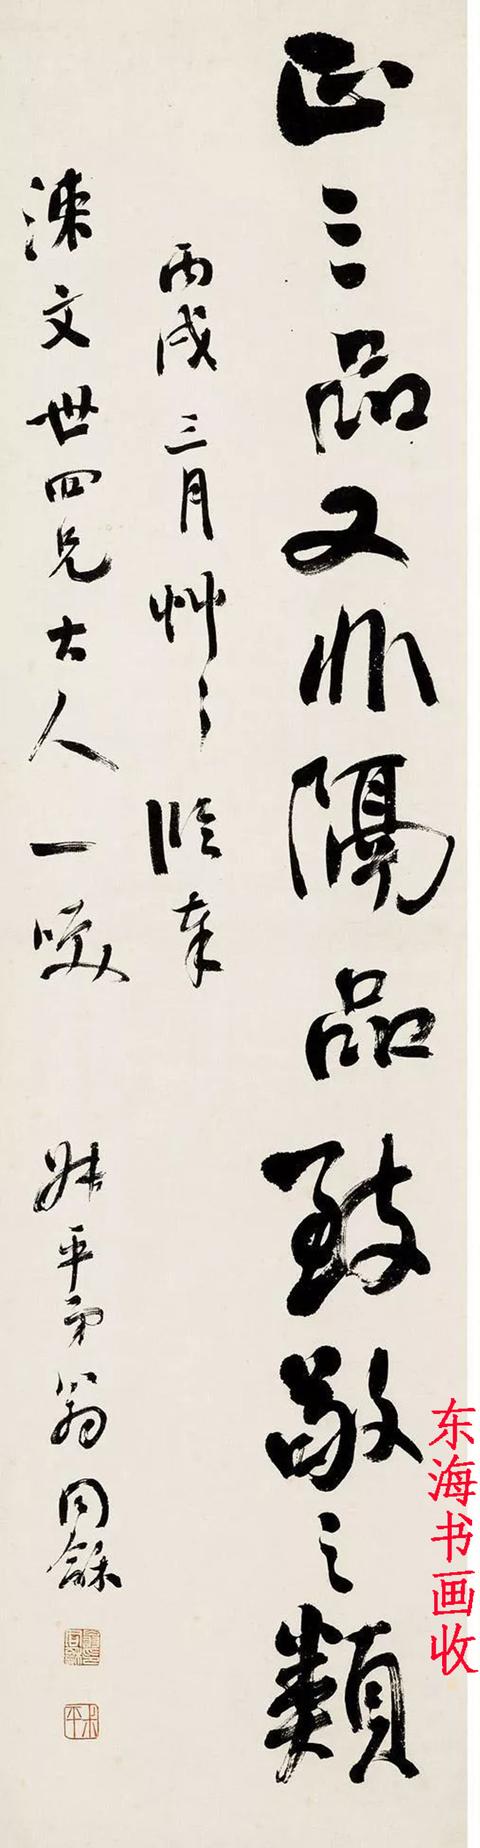 正三品又非隔品致敬之類
丙戌三月艸々臨奉
涑文世四兄大人一咲
叔平弟翁同龢
叔平
东海书画收